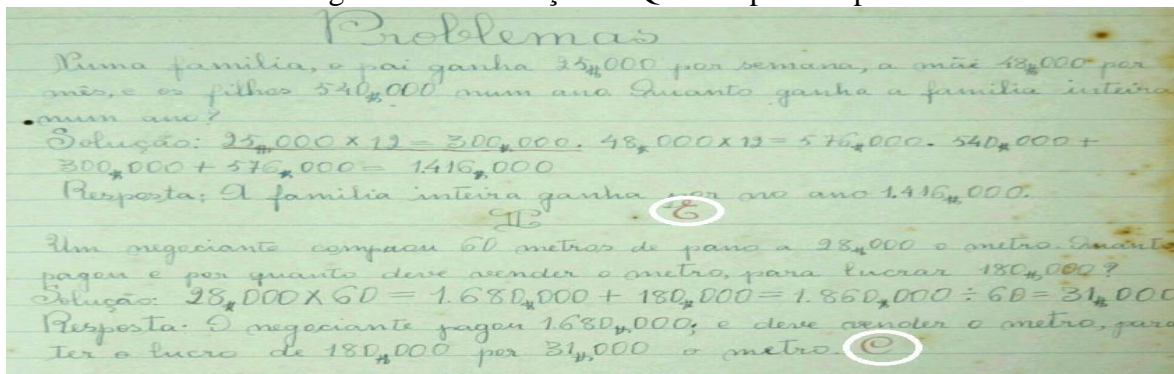 Problemas
Numa familia, o pai ganha 25$000 por semana, a mãe 48$000 por
mês, e os filhos 540$000 num ano Quanto ganha a familia inteira
num ano?
Solução: 25$000 x 12 = 300$000. 48$000 x 12 = 576$000. 540$000 +
300$000 + 576$000 = 1.416$000
Resposta: A familia inteira ganha por no ano 1.416$000.
E
II
Um negociante comprou 60 metros de pano a 28$000 o metro. Quanto
pagou e por quanto deve vender o metro, para lucrar 180$000?
Solução: 28$000 X 60 = 1.680$000 + 180$000 = 1.860$000 ÷ 60 = 31$000
Resposta: O negociante pagou 1.680$000; e deve vender o metro, para
ter o lucro de 180$000 por 31$000 o metro. C